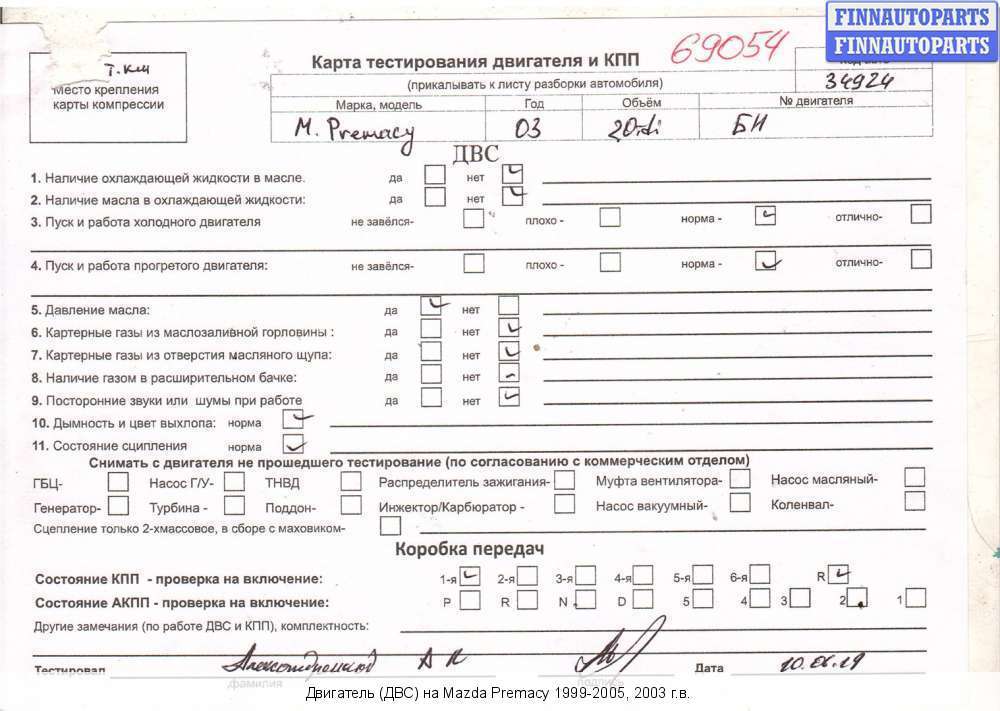 FINNAUTOPARTS
FINNAUTOPARTS
69054
т.км
Место крепления
карты компрессии
Карта тестирования двигателя и КПП
(прикалывать к листу разборки автомобиля)
34924
Марка, модель Год Объём № двигателя
M. Premacy 03 20 di БН
ДВС
1. Наличие охлаждающей жидкости в масле. да нет
2. Наличие масла в охлаждающей жидкости: да нет
3. Пуск и работа холодного двигателя не завёлся- плохо - норма - отлично-
4. Пуск и работа прогретого двигателя: не завёлся- плохо - норма - отлично-
5. Давление масла: да нет
6. Картерные газы из маслозаливной горловины : да нет
7. Картерные газы из отверстия масляного щупа: да нет
8. Наличие газом в расширительном бачке: да нет
9. Посторонние звуки или шумы при работе да нет
10. Дымность и цвет выхлопа: норма
11. Состояние сципления норма
Снимать с двигателя не прошедшего тестирование (по согласованию с коммерческим отделом)
ГБЦ- Насос Г/У- ТНВД Распределитель зажигания- Муфта вентилятора- Насос масляный-
Генератор- Турбина - Поддон- Инжектор/Карбюратор - Насос вакуумный- Коленвал-
Сцепление только 2-хмассовое, в сборе с маховиком-
Коробка передач
Состояние КПП - проверка на включение: 1-я 2-я 3-я 4-я 5-я 6-я R
Состояние АКПП - проверка на включение: P R N D 5 4 3 2 1
Другие замечания (по работе ДВС и КПП), комплектность:
Тестировал А К Дата 10.06.19
фамилия подпись
Двигатель (ДВС) на Mazda Premacy 1999-2005, 2003 г.в.